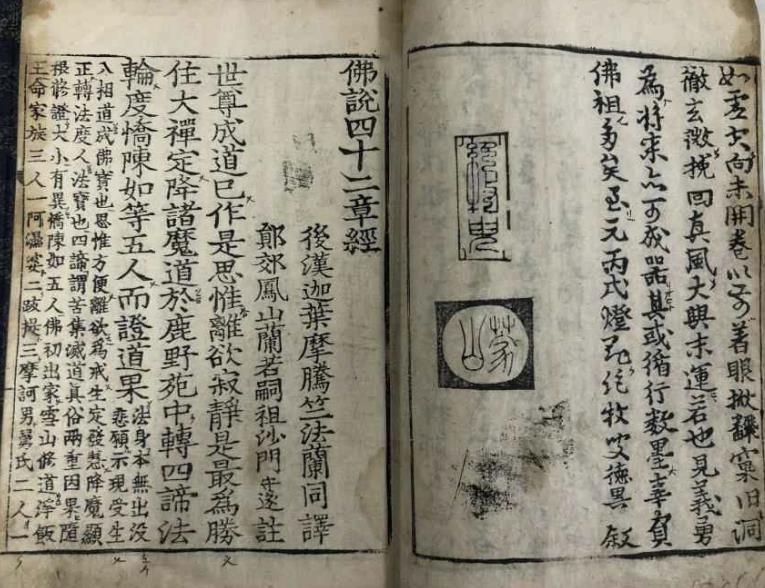 向未開卷以前著眼掀飜窠臼洞
徹玄微挽回真風大興末運若也見義勇
為將來亦可成器其或循行數墨辜負
佛祖多矣至元丙戌燈絕牧叟德異叙
絕牧叟
蒙山
佛說四十二章經
後漢迦葉摩騰竺法蘭同譯
鄭郊鳳山蘭若嗣祖沙門守遂註
世尊成道已作是思惟離欲寂靜是最爲勝
住大禪定降諸魔道於鹿野苑中轉四諦法
輪度憍陳如等五人而證道果法身本無出没
悲願示現受生
八相道成佛寶也思惟方便離欲爲戒生定發慧降魔顯
正轉法度人法寶也四諦謂苦集滅道眞俗兩重因果隨
根修證大小有異憍陳如五人佛初出家雪山修道淨飯
王命家族三人一阿濕婆二跋提三摩訶男舅氏二人一